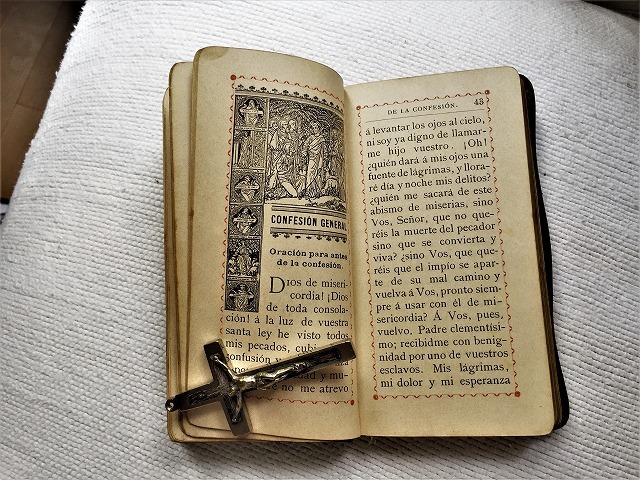 CONFESIÓN GENERAL
Oración para antes
de la confesión.
DIOS de miseri-
cordia! ¡Dios
de toda consola-
ción! á la luz de vuestra
santa ley he visto todos
mis pecados,
confusión y
y mu-
no me atrevo
DE LA CONFESIÓN. 43
á levantar los ojos al cielo,
ni soy ya digno de llamar-
me hijo vuestro. ¡Oh!
¿quién dará á mis ojos una
fuente de lágrimas, y llora-
ré día y noche mis delitos?
¿quién me sacará de este
abismo de miserias, sino
Vos, Señor, que no que-
réis la muerte del pecador
sino que se convierta y
viva? ¿sino Vos, que que-
réis que el impío se apar-
te de su mal camino y
vuelva á Vos, pronto siem-
pre á usar con él de mi-
sericordia? Á Vos, pues,
vuelvo. Padre clementísi-
mo; recibidme con benig-
nidad por uno de vuestros
esclavos. Mis lágrimas,
mi dolor y mi esperanza